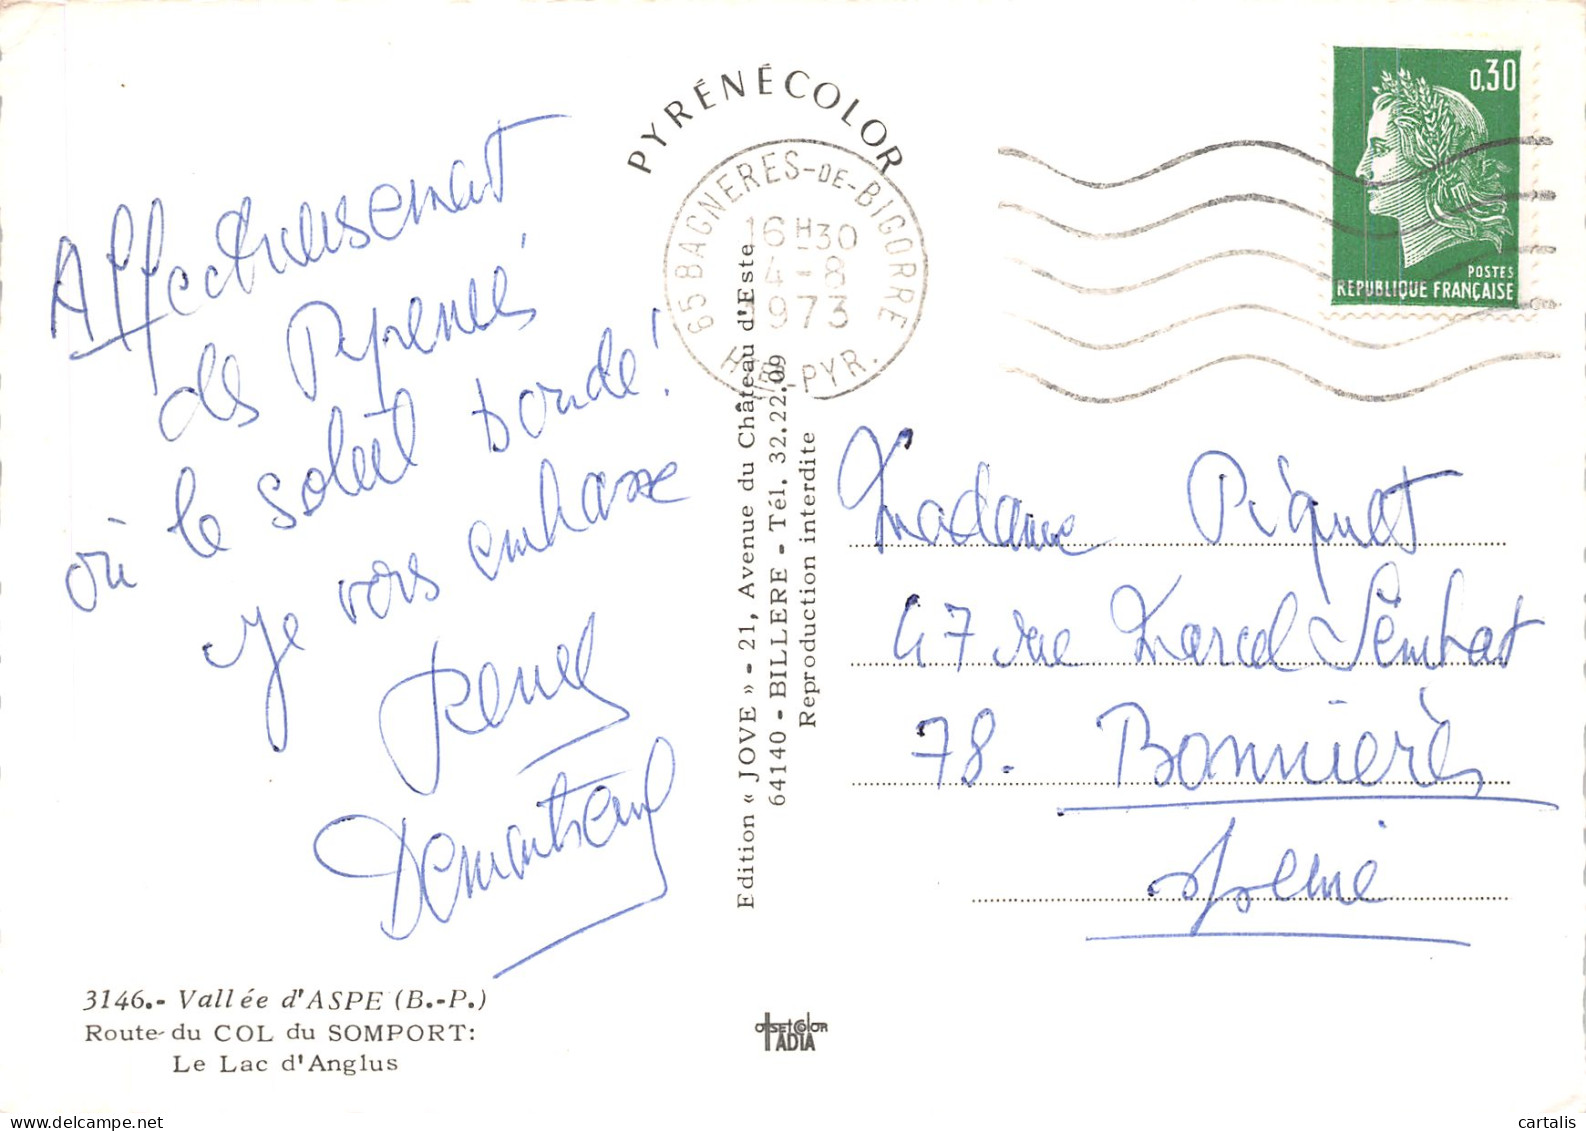 PYRÉNÉCOLOR
Affectueusement
des Pyrénées
où le soleil bonde !
je vous embrasse
Renée
65 BAGNERES-DE-BIGORRE
16H30
4-8
1973
HTES-PYR.
0,30
POSTES
REPUBLIQUE FRANÇAISE
Edition « JOVE » - 21, Avenue du Château d'Este
64140 - BILLERE - Tél. 32.22.09
Reproduction interdite
Madame Piquot
47 rue Marcel Sembat
78. Bonnières
s/Seine
3146.- Vallée d'ASPE (B.-P.)
Route du COL du SOMPORT:
Le Lac d'Anglus
OFFSETCOLOR
IADIA
cartalis